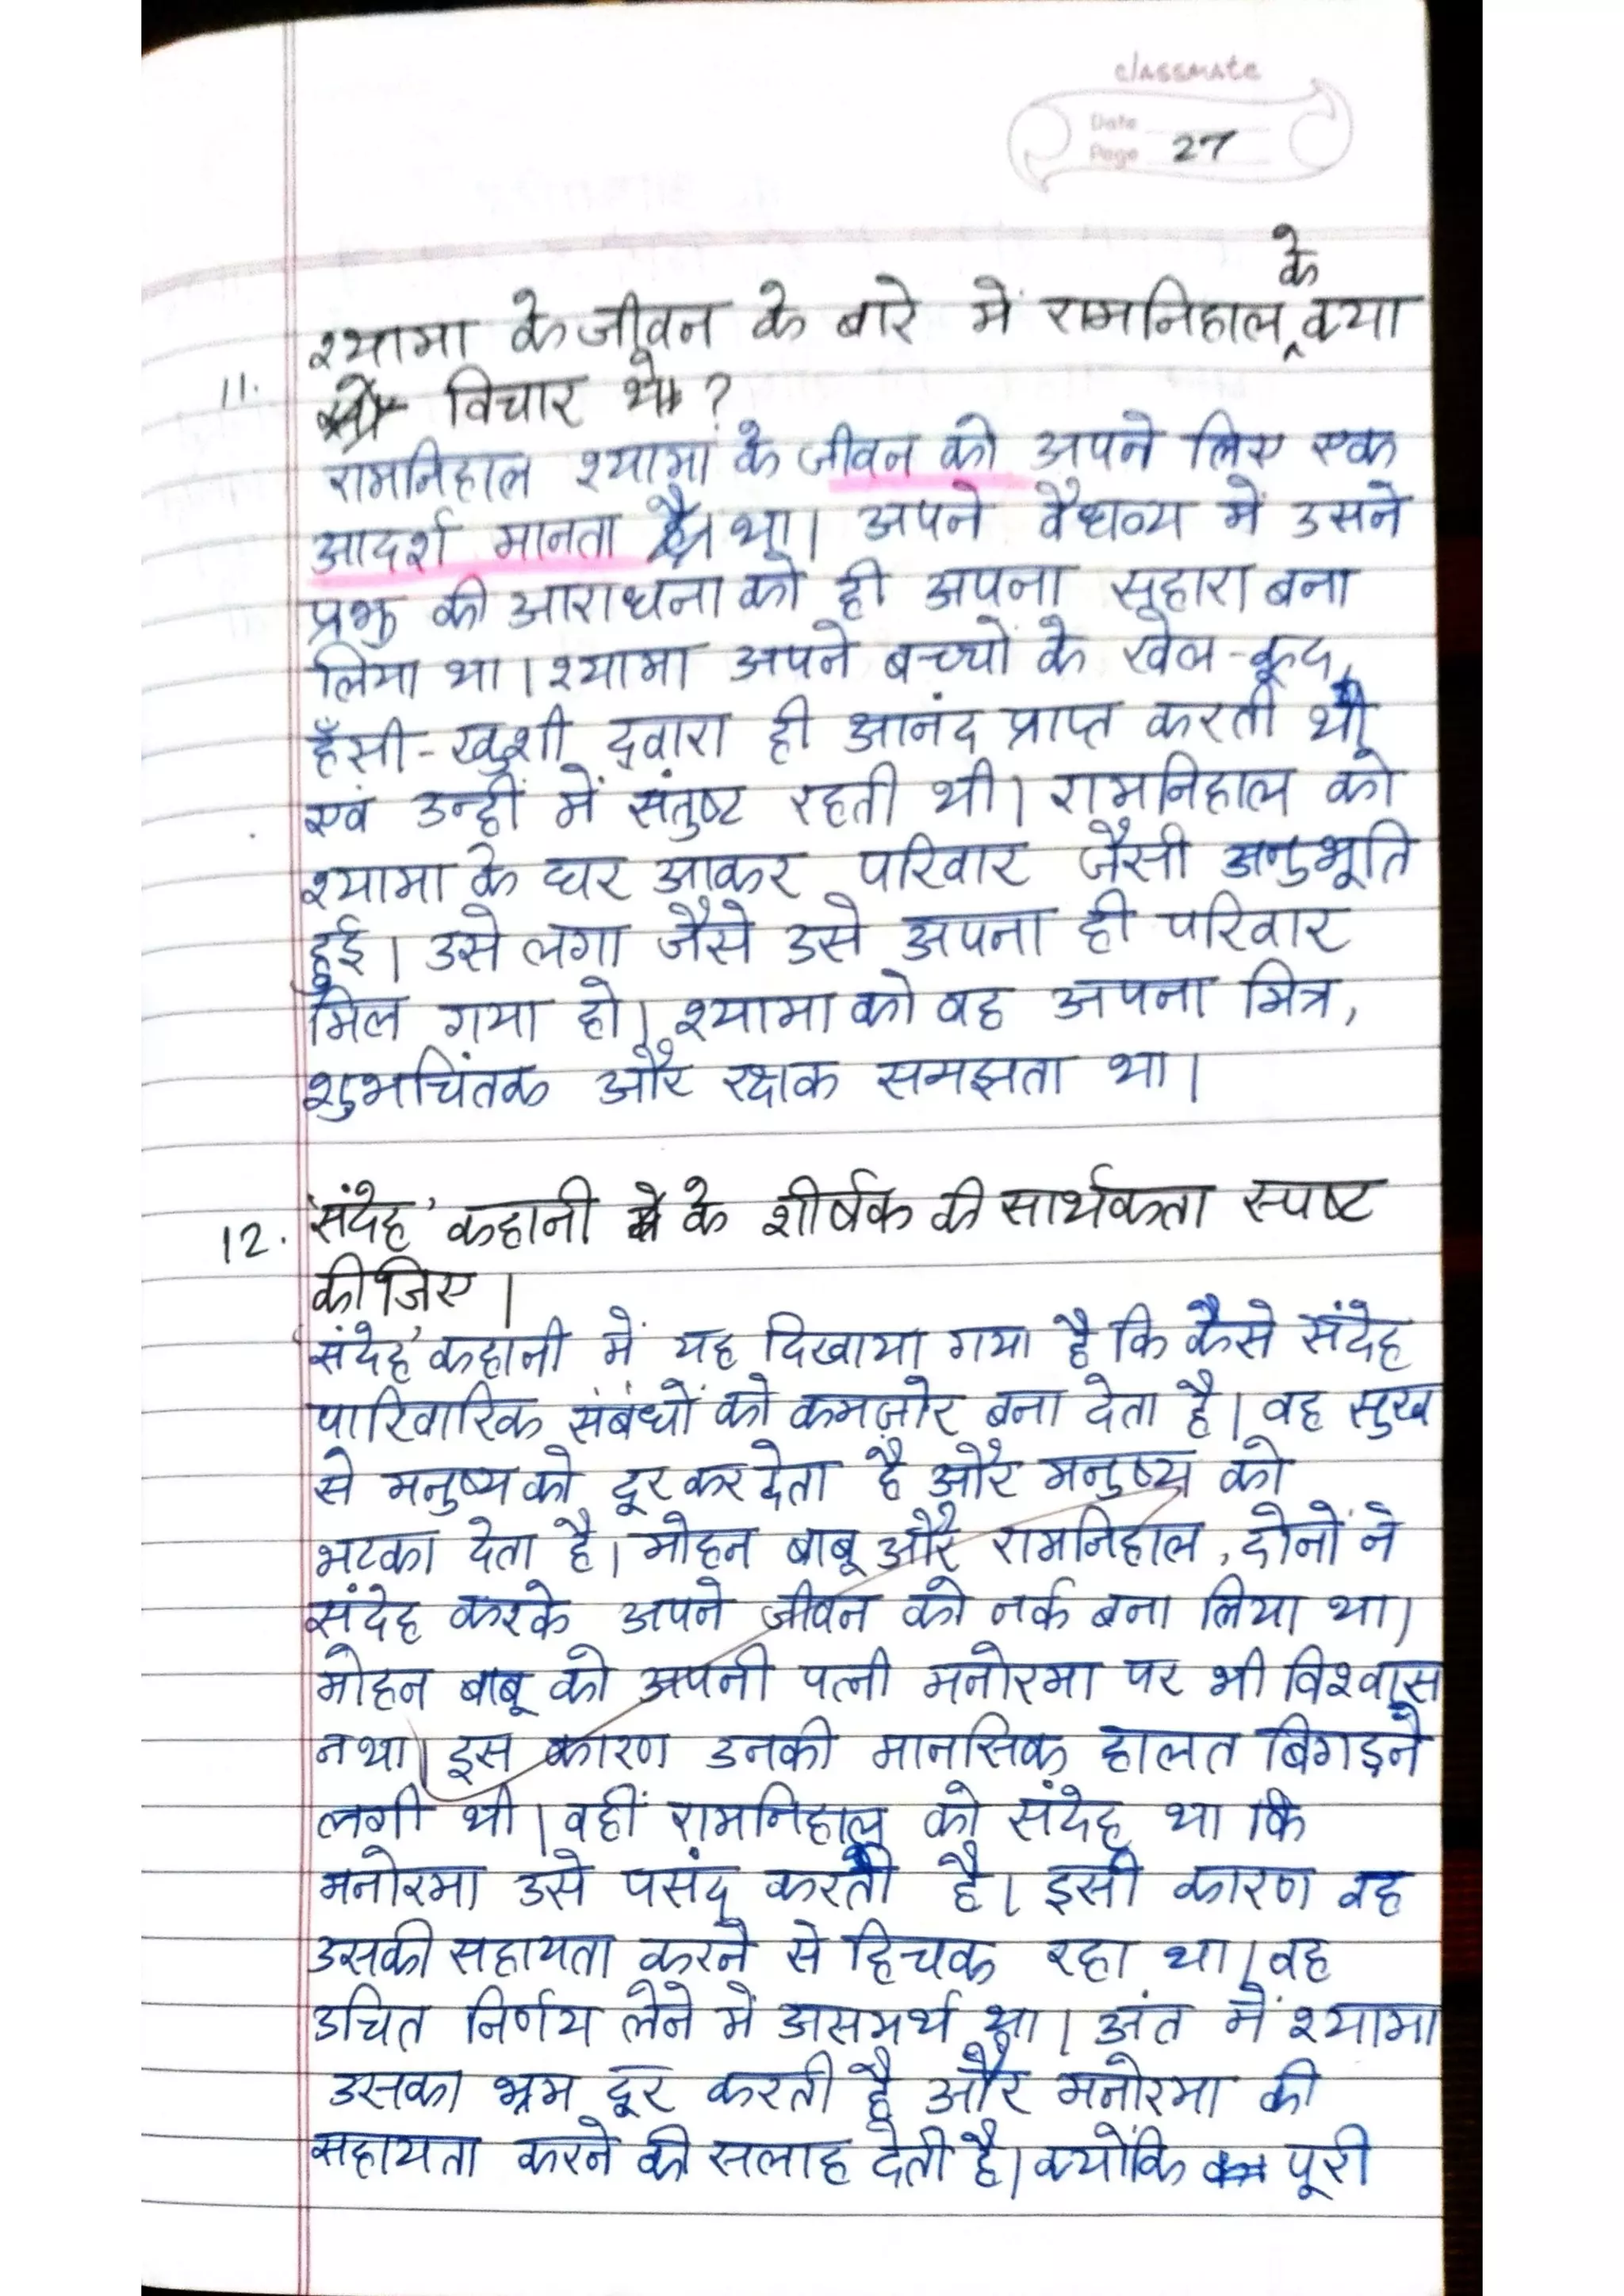 classmate
Date
Page 27
के
श्यामा के जीवन के बारे में रामनिहाल क्या
11.
विचार थे?
रामनिहाल श्यामा के जीवन को अपने लिए एक
आदर्श मानता था। अपने वैधव्य में उसने
प्रभु की आराधना को ही अपना सहारा बना
लिया था। श्यामा अपने बच्चों के खेल-कूद,
हँसी-खुशी द्वारा ही आनंद प्राप्त करती थी
एवं उन्हीं में संतुष्ट रहती थी। रामनिहाल को
श्यामा के घर आकर परिवार जैसी अनुभूति
हुई। उसे लगा जैसे उसे अपना ही परिवार
मिल गया हो। श्यामा को वह अपना मित्र,
शुभचिंतक और रक्षक समझता था।
12. 'संदेह' कहानी के शीर्षक की सार्थकता स्पष्ट
कीजिए।
'संदेह' कहानी में यह दिखाया गया है कि कैसे संदेह
पारिवारिक संबंधों को कमज़ोर बना देता है। वह सुख
से मनुष्य को दूर कर देता है और मनुष्य को
भटका देता है। मोहन बाबू और रामनिहाल, दोनों ने
संदेह करके अपने जीवन को नर्क बना लिया था।
मोहन बाबू को अपनी पत्नी मनोरमा पर भी विश्वास
न था। इस कारण उनकी मानसिक हालत बिगड़ने
लगी थी। वहीं रामनिहाल को संदेह था कि
मनोरमा उसे पसंद करती है। इसी कारण वह
उसकी सहायता करने से हिचक रहा था। वह
उचित निर्णय लेने में असमर्थ था। अंत में श्यामा
उसका भ्रम दूर करती है और मनोरमा की
सहायता करने की सलाह देती है। क्योंकि पूरी